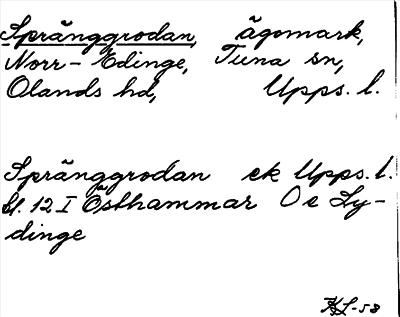 Språnggrodan, ägomark,
Norr-Edinge, Tuna sn,
Olands hd, Upps. l.
Språnggrodan ek Upps. l.
bl. 12 I Östhammar O e Ly-
dinge
KL-58